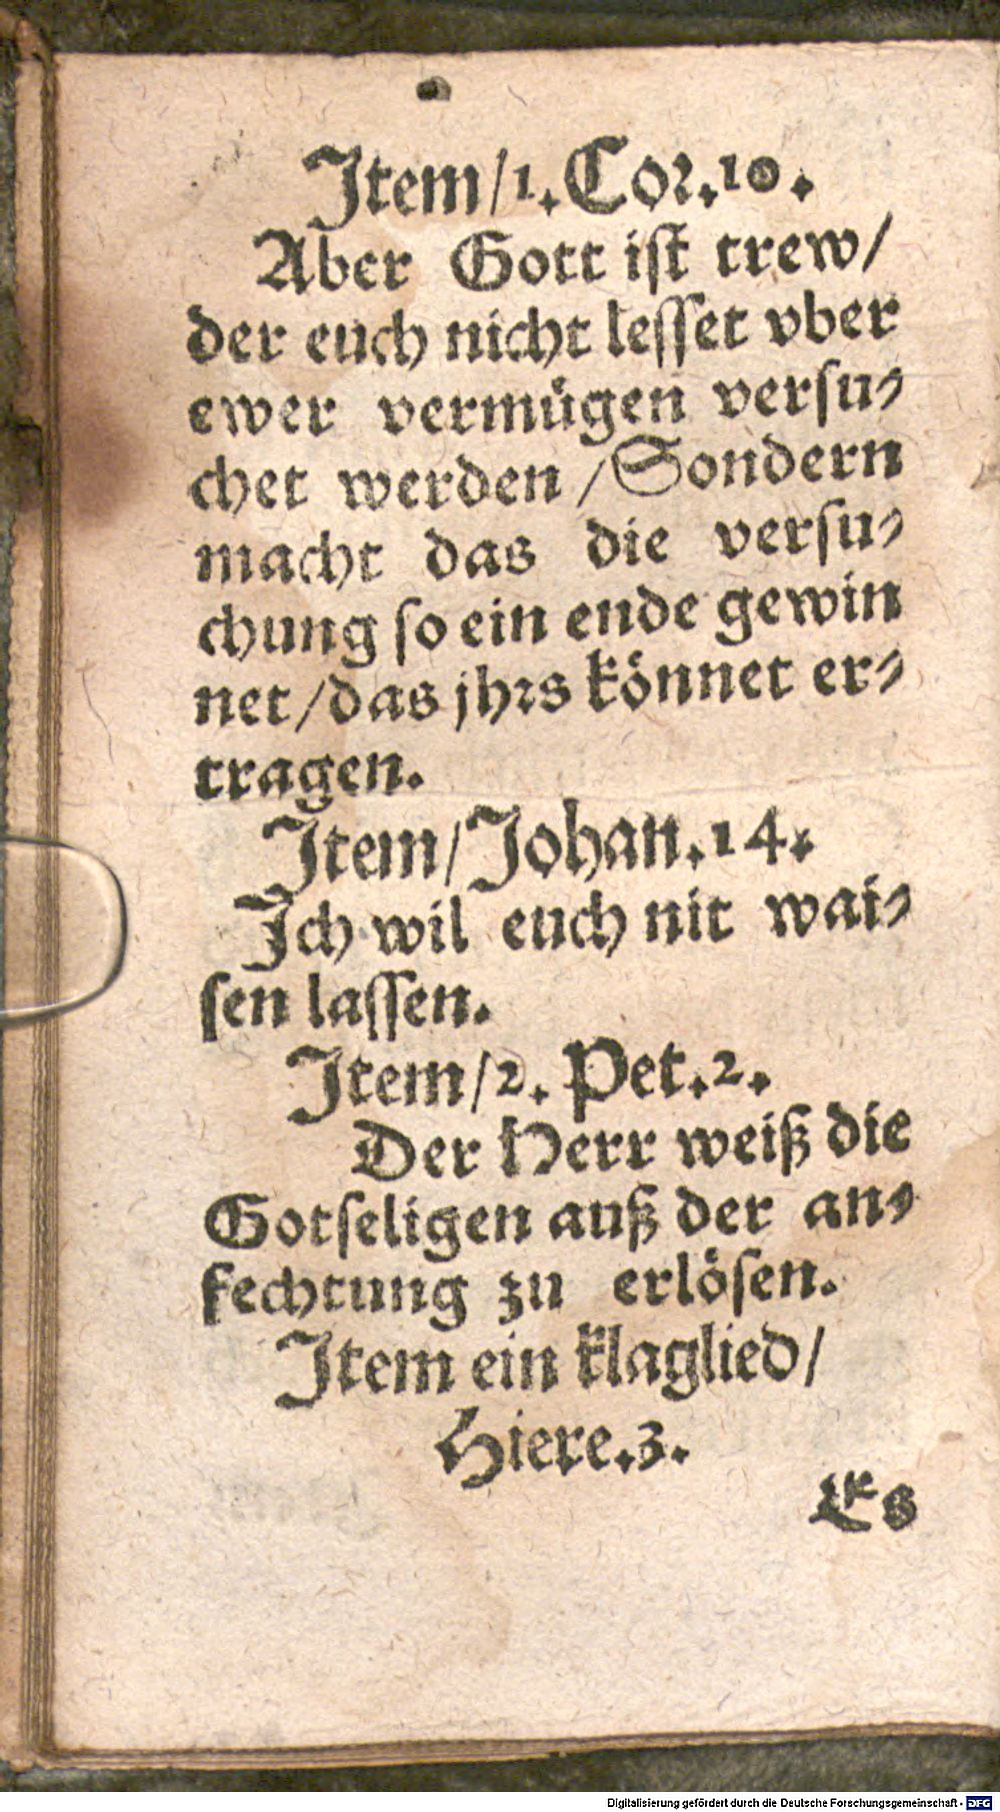 Item/1. Cor. 10.
Aber Gott ist trew/
der euch nicht lesset vber
ewer vermügen versu-
chet werden/Sondern
macht das die versu-
chung so ein ende gewin
net/das jhrs könnet er-
tragen.
Item/Johan. 14.
Ich wil euch nit wai-
sen lassen.
Item/2. Pet. 2.
Der Herr weiß die
Gotseligen auß der an-
fechtung zu erlösen.
Item ein klaglied/
Hiere. 3.
Es
Digitalisierung gefördert durch die Deutsche Forschungsgemeinschaft - DFG